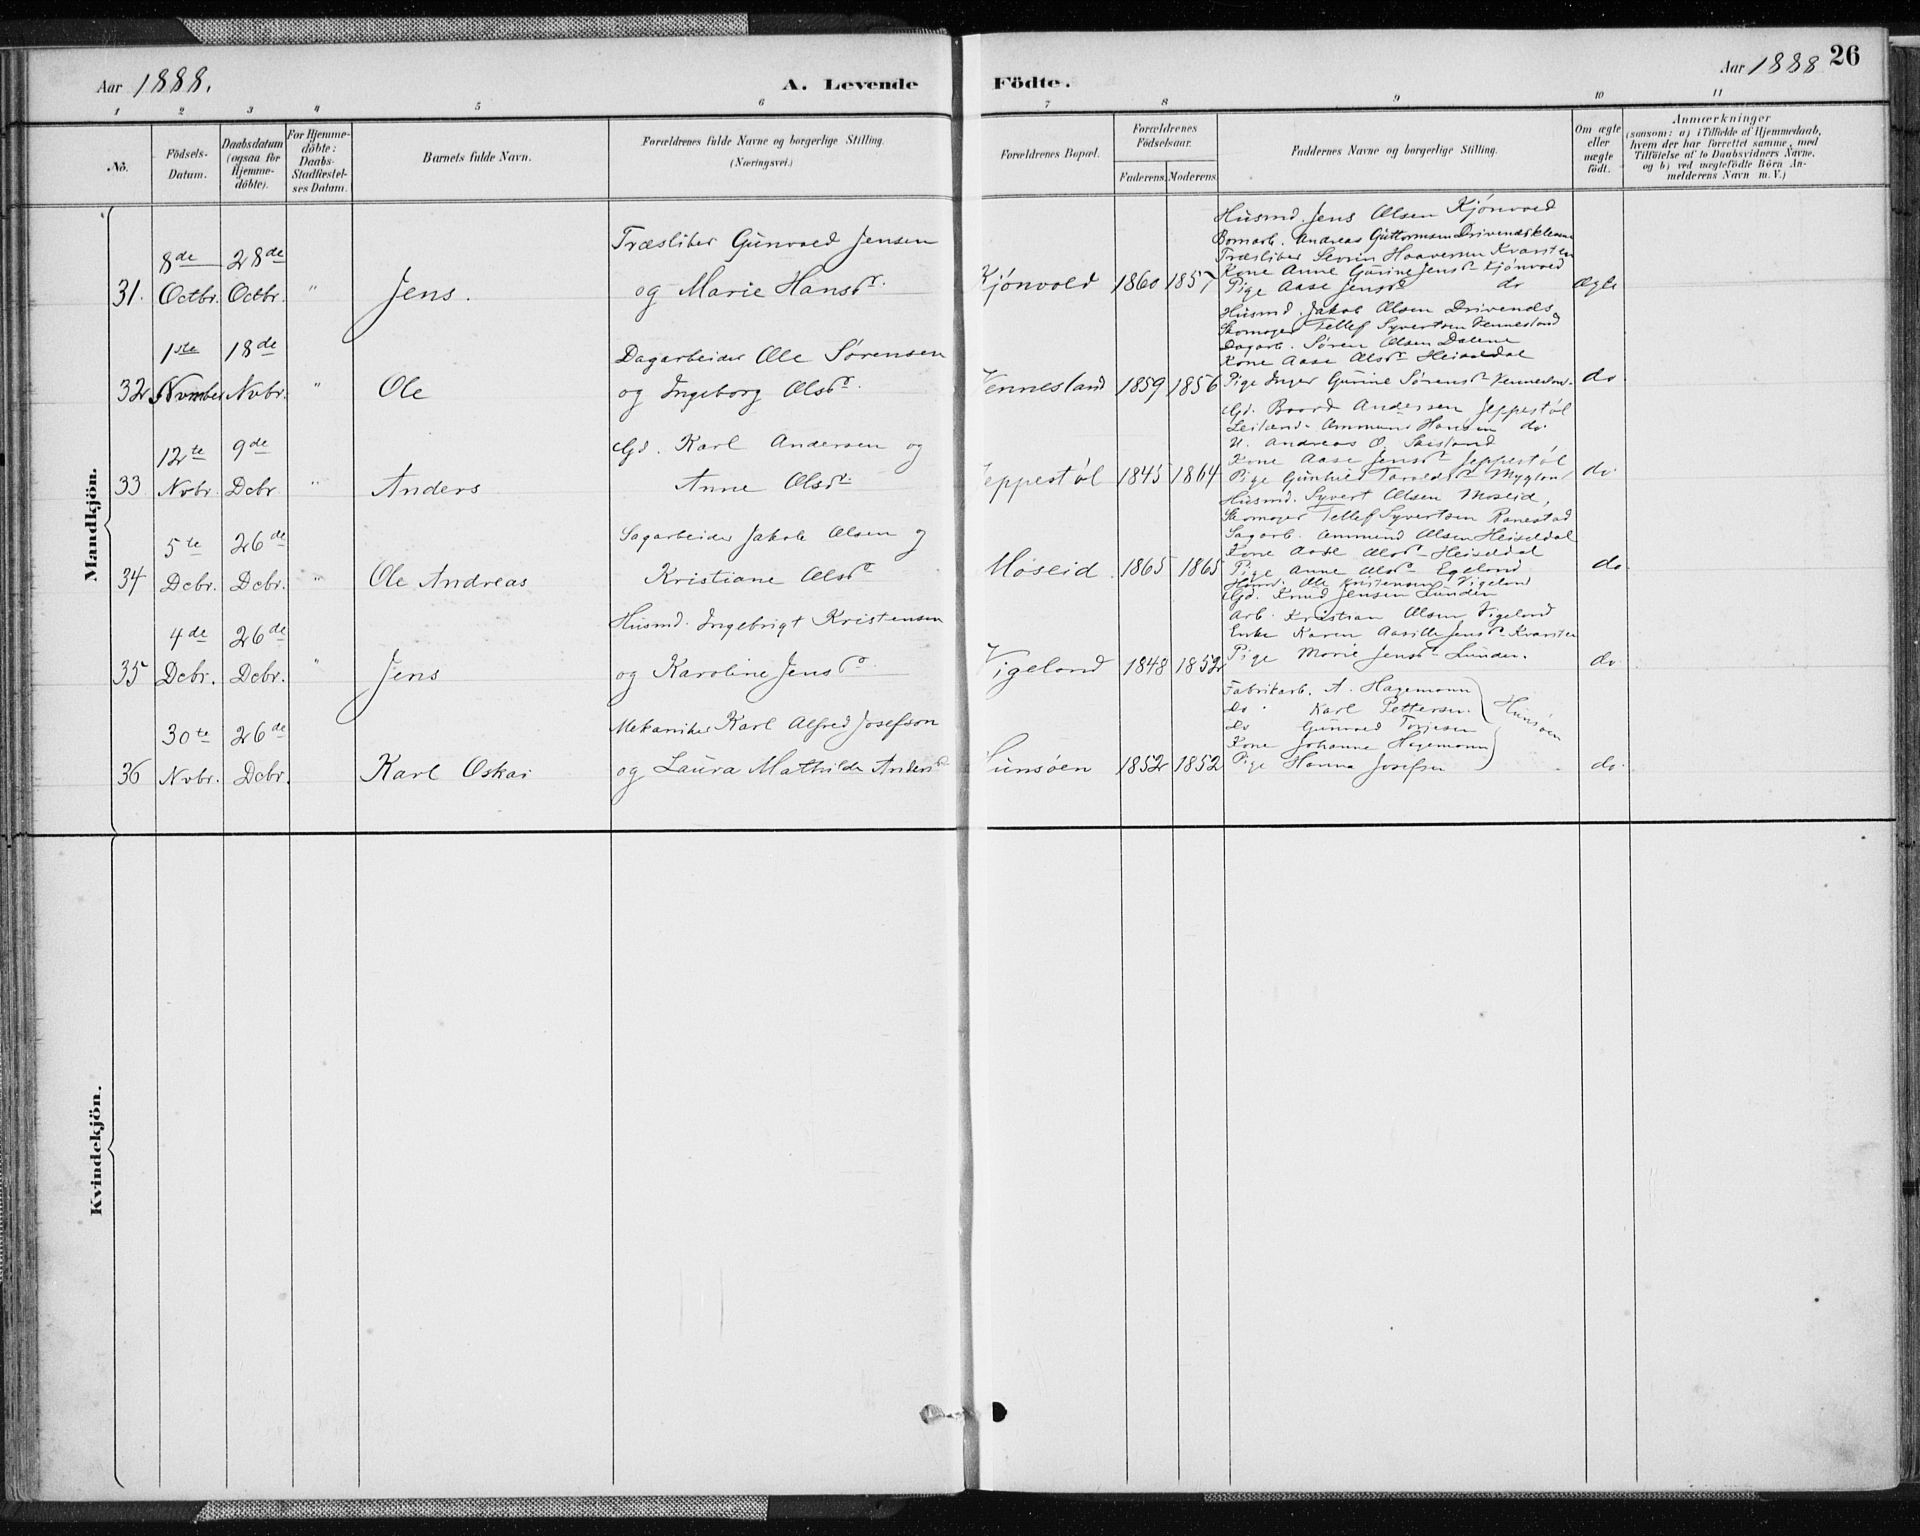 Aar 1888.
A. Levende Födte.
Aar 1888 26
1 2 3 4 5 6 7 8 9 10 11
No.
Födsels-Datum.
Daabsdatum (ogsaa for Hjemme-döbte).
For Hjemme-döbte: Daabs-Stadfæstel-ses Datum.
Barnets fulde Navn.
Forældrenes fulde Navne og borgerlige Stilling. (Næringsvei.)
Forældrenes Bopæl.
Forældrenes Födselsaar.
Faderens. Moderens.
Faddernes Navne og borgerlige Stilling.
Om ægte eller uægte födt.
Anmærkninger
(saasom: a) i Tilfælde af Hjemmedaab,
hvem der har forrettet samme, med
Tilföielse af to Daabsvidners Navne,
og b) ved uægtefödte Börn An-
melderens Navn m. V.)
Mandkjön.
31. 8de Octbr. 28de Octbr. " Jens.
Træsliber Gunvald Jensen
og Marie Hansdr.
Kjønvold 1860 1857
Husmd. Jens Olsen Kjønvold
Bomarb. Andreas Guttormsen Drivendskleven
Træsliber Severin Haaversen Kvarsten
Kone Anne Gurine Jensdr Kjønvold
Pige Aase Jensdr do
ægte
32 1ste November 18de Nvbr. " Ole
Dagarbeider Ole Sørensen
og Ingeborg Olsdr.
Vennesland 1859 1856
Husmd. Jakob Olsen Drivends
Skomager Tellef Syvertsen Vennesland
Dagarb. Søren Olsen Dalene
Kone Aase Olsdr Heiseldal
Pige Inger Gurine Sørensdr Vennesland
do.
33 12te Nvbr. 9de Dcbr " Anders
Gd. Karl Andersen og
Anne Olsdr.
Jeppestøl 1845 1864
Gd. Baard Andersen Jeppestøl
Leilænd. Ommund Hansen do.
U. Andreas O.
Kone Aase Jensdr Jeppestøl
Pige Gunhild
do
34 5te Dcbr. 26de Dcbr. " Ole Andreas
Sagarbeider Jakob Olsen og
Kristiane Olsdr
Moseid. 1865 1865
Husmd. Syvert Olsen Moseid,
Skomager Tellef Syvertsen Ranestad
Sagarb. Ommund Olsen Heiseldal
Kone Aase Olsdr Heiseldal
Pige Anne Olsdr Egeland
do
35 4de Dcbr. 26de Dcbr. " Jens
Husmd. Ingebrigt Kristensen
og Karoline Jensdr.
Vigeland 1848 1852
Husmd. Ole Kristensen Vigeland
Gd. Knud Jensen Lunden
Arb. Kristian Olsen Vigeland
Enke Karen Aasille Jensdr Kvarsten
Pige Marie Jensdr Lunden.
do
36 30te Nvbr. 26de Dcbr. Karl Oskar
Mekaniker Karl Alfred Josefson
og Laura Mathilde Andersdr
Hunsøen 1852 1852
Fabrikarb. A. Hagemann
do. Karl Pettersen
do Gunvald Torjesen
Kone Johanne Hagemann
Pige Hanna Josefsen
Hunsøen
do.
Kvindekjön.